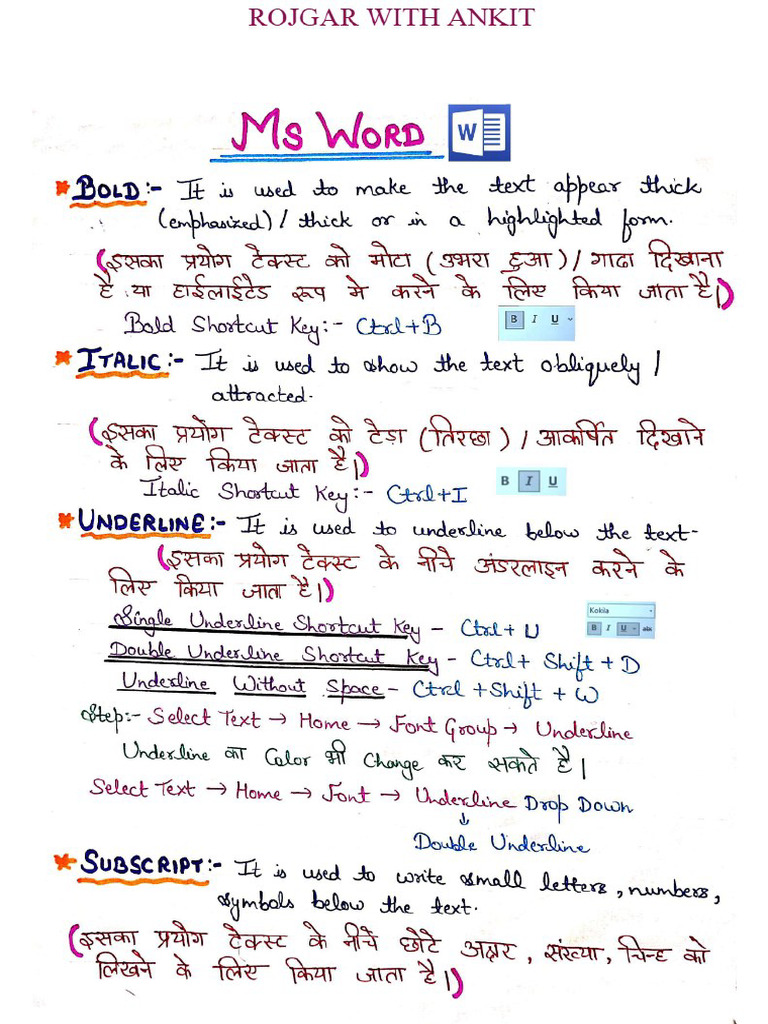 ROJGAR WITH ANKIT
MS WORD
* BOLD:- It is used to make the text appear thick
(emphasized) / thick or in a highlighted form.
(इसका प्रयोग टेक्स्ट को मोटा (उभरा हुआ) / गाढा दिखाना
है या हाईलाईटैड रूप मे करने के लिए किया जाता है।)
Bold Shortcut Key:- Ctrl+B
B I U
* ITALIC:- It is used to show the text obliquely /
attracted.
(इसका प्रयोग टेक्स्ट को टेड़ा (तिरछा) / आकर्षित दिखाने
के लिए किया जाता है।)
Italic Shortcut Key:- Ctrl+I
B I U
* UNDERLINE:- It is used to underline below the text-
(इसका प्रयोग टेक्स्ट के नीचे अंडरलाइन करने के
लिए किया जाता है।)
Single Underline Shortcut Key - Ctrl+ U
Kokila
B I U abc
Double Underline Shortcut Key - Ctrl+ Shift + D
Underline Without Space - Ctrl +Shift + W
Step:- Select Text → Home → Font Group → Underline
Underline का Color भी Change कर सकते है।
Select Text → Home → Font → Underline Drop Down
↓
Double Underline
* SUBSCRIPT:- It is used to write small letters, numbers,
symbols below the text.
(इसका प्रयोग टेक्स्ट के नीचे छोटे अक्षर, संख्या, चिन्ह को
लिखने के लिए किया जाता है।)